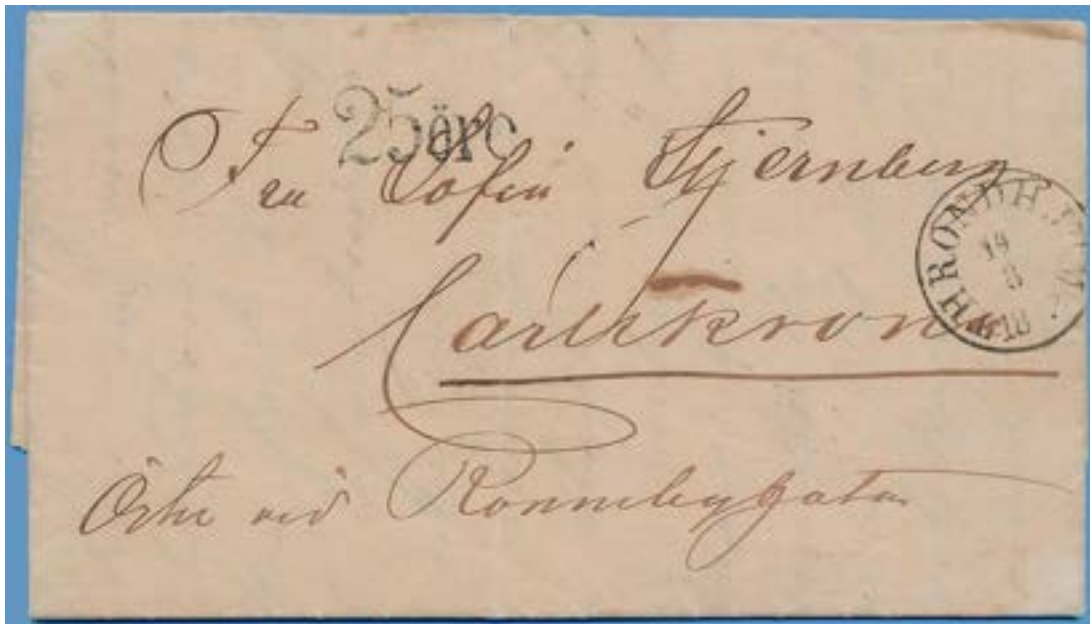 25 öre
Fru Sofia Stjernberg
THRONDHJEM
14
8
18
Carlskrona
vid Ronnebygatan